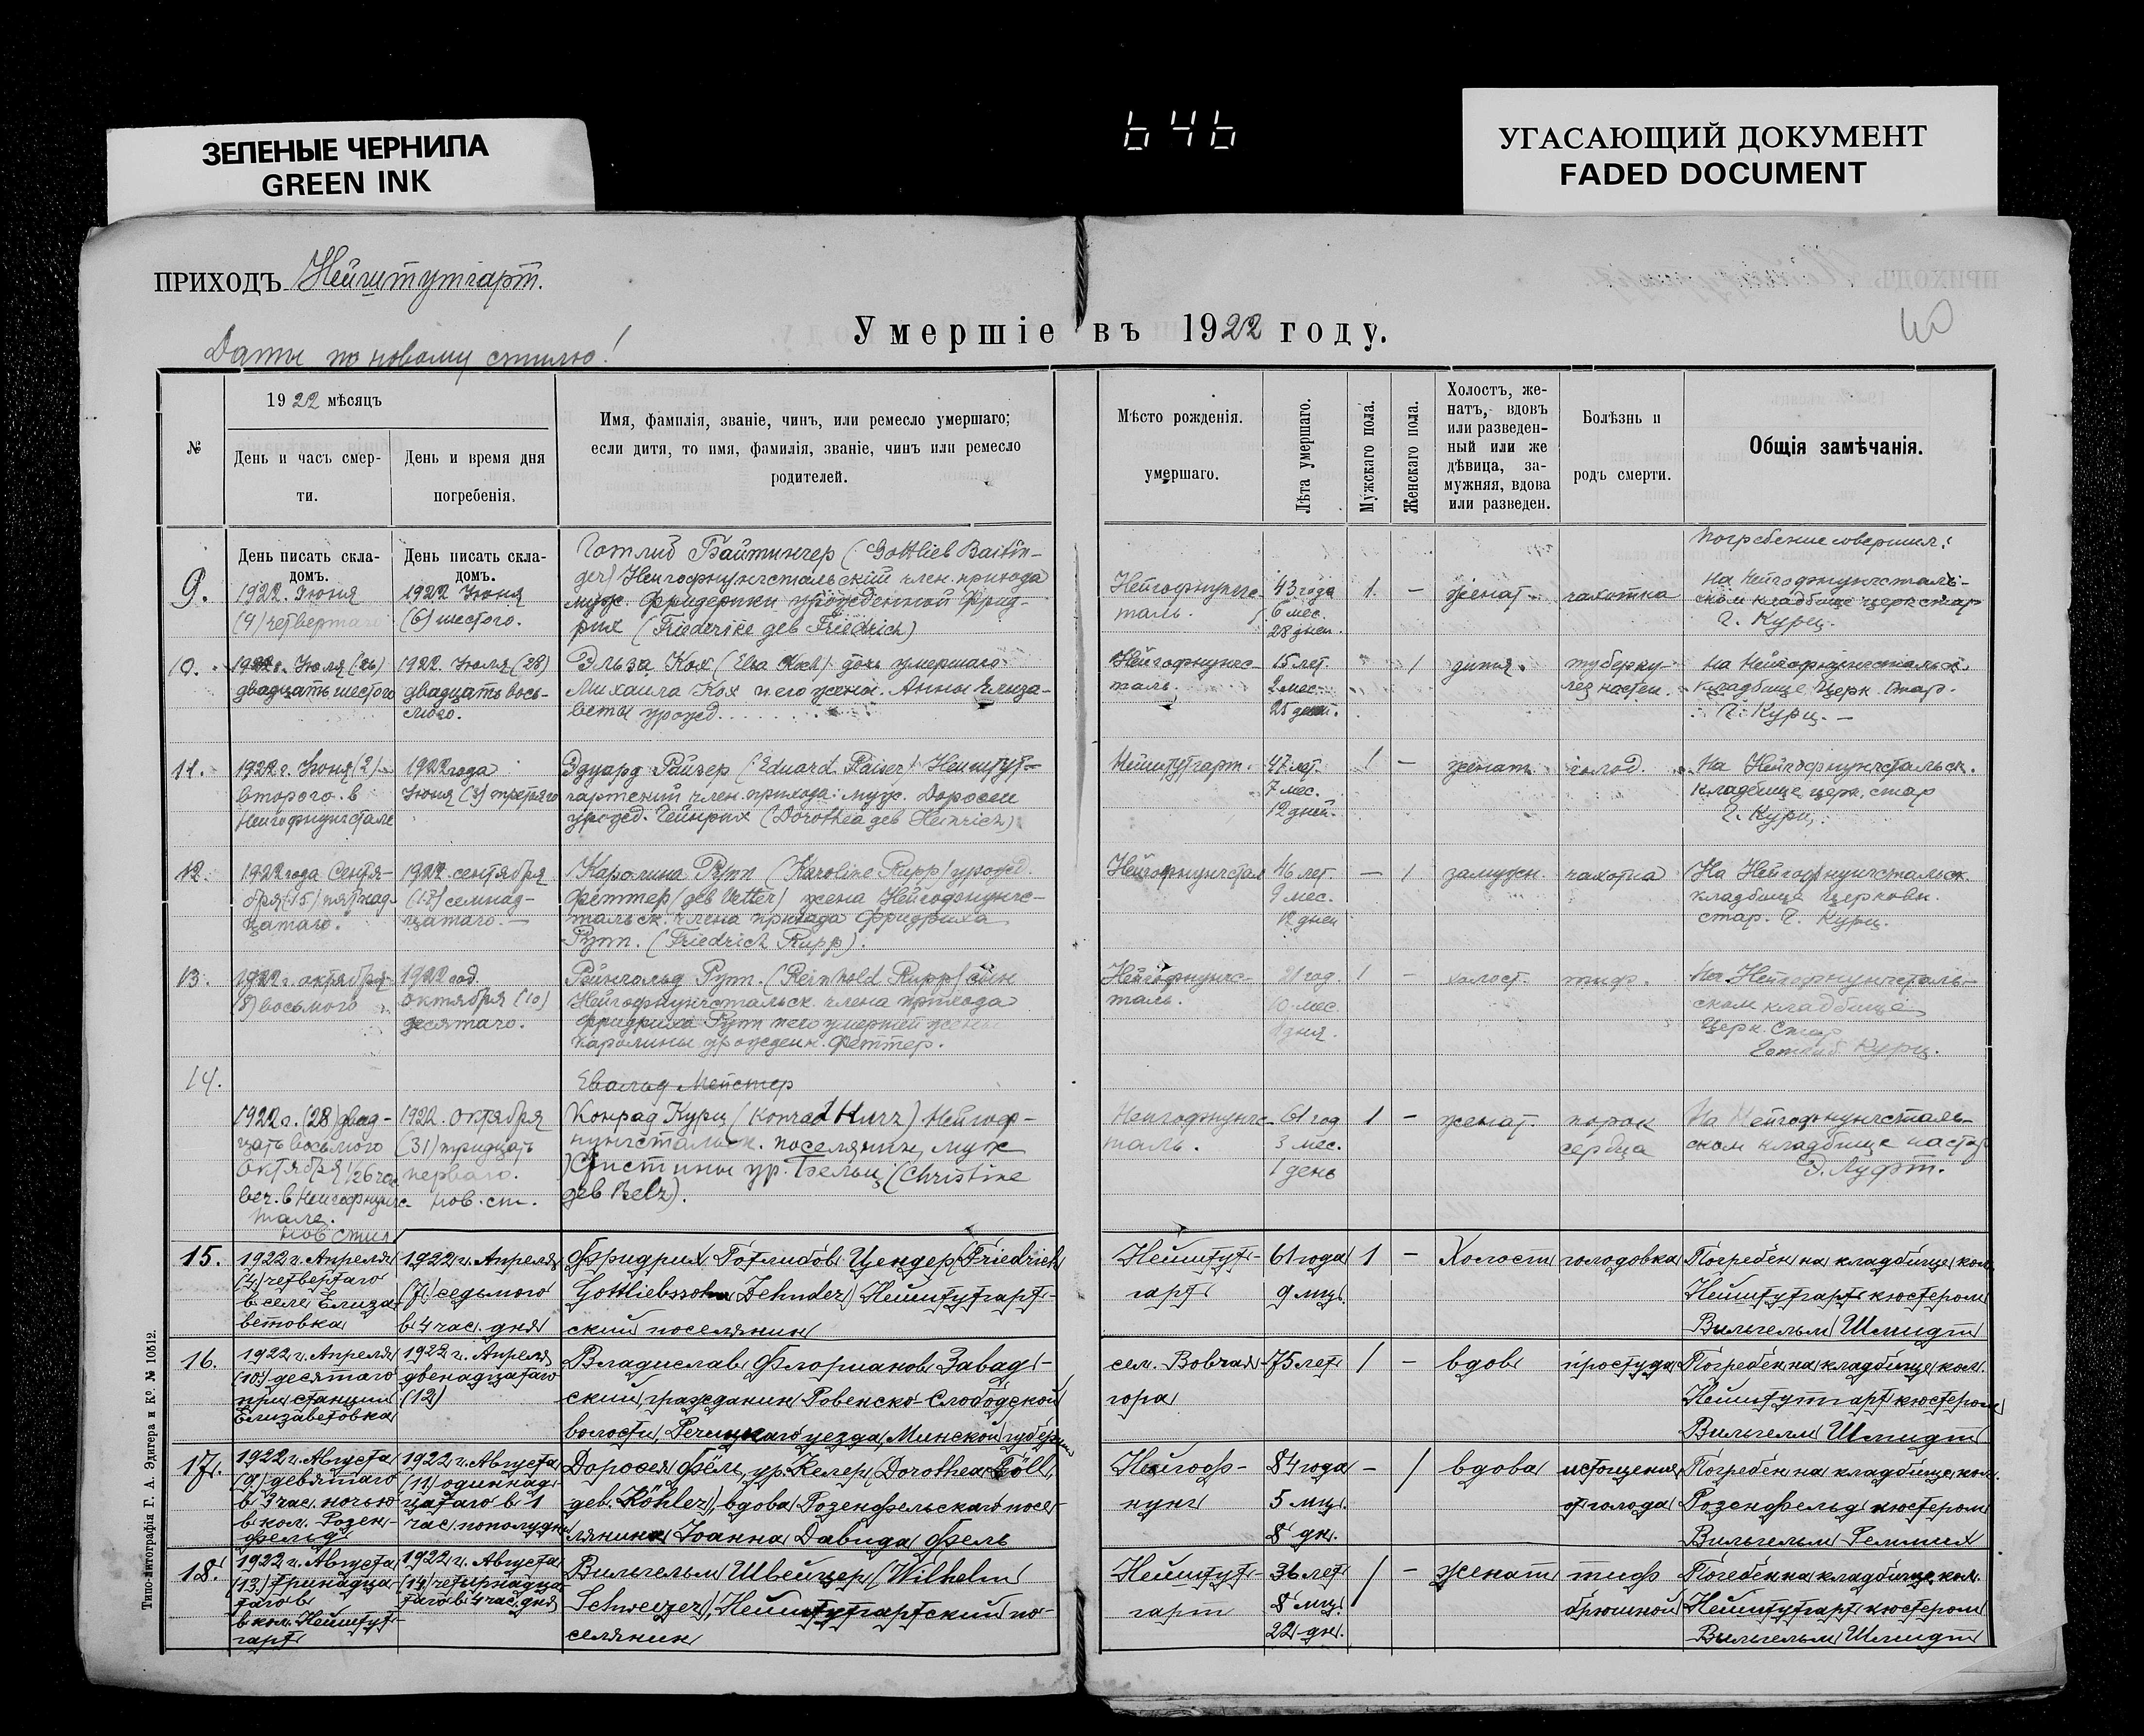 ЗЕЛЕНЫЕ ЧЕРНИЛА
GREEN INK
646
УГАСАЮЩИЙ ДОКУМЕНТ
FADED DOCUMENT
ПРИХОДЪ Нейштутгарт.
Умершіе въ 1922 году.
Даты по новому стилю!
№
1922 мѣсяцъ
День и часъ смер-
ти.
День и время дня
погребенія.
Имя, фамилія, званіе, чинъ, или ремесло умершаго;
если дитя, то имя, фамилія, званіе, чинъ или ремесло
родителей.
Мѣсто рожденія.
умершаго.
Лѣта умершаго.
Мужскаго пола.
Женскаго пола.
Холостъ, же-
натъ, вдовъ
или разведен-
ный или же
дѣвица, за-
мужняя, вдова
или разведен.
Болѣзнь и
родъ смерти.
Общія замѣчанія.
День писать скла-
домъ.
День писать скла-
домъ.
9.
1922. Июня
(4) четвертаго
1922 Июня
(6) шестого.
Готлиб Байтингер (Gottlieb Baitin-
ger) Нейгофнунгстальский член прихода
муж Фридерики урожденной Фрид-
рих (Friederike geb Friedrich)
Нейгофнунгс-
таль.
43 года
6 мес.
28 дней.
1. -
женат
чахотка
Погребение совершил:
На Нейгофнунгсталь-
ском кладбище церк стар
Г. Курц.
10.
1922 г. Июля (26)
двадцать шестого
1922. Июля (28)
двадцать вось-
мого.
Эльза Кох (Elsa Koch) дочь умершаго
Михаила Кох и его жены Анны Елиза-
веты урожд.
Нейгофнунгс-
таль.
15 лет
2 мес.
25 дней.
1
дитя.
туберку-
лез
На Нейгофнунгстальск.
кладбище Церк. стар.
Г. Курц. -
11.
1922 г. Июня (2)
второго. в
Нейгофнунгстале
1922 года
Июня (3) третяго
Эдуард Райзер (Eduard Raiser) Нейштут-
гартский член прихода: муж. Доротеи
урожд. Гейнрих (Dorothea geb Heinrich)
Нейштутгарт.
47 лет.
7 мес.
12 дней.
1 -
женат
голод.
На Нейгофнунгстальск.
кладбище церк. стар
Г. Курц.
12.
1922 года Сентя-
бря (15) пятнад-
цатаго.
1922 сентября
(17) семнад-
цатаго. -
Каролина Рупп (Karoline Rupp) урожд.
Феттер (geb Vetter) жена Нейгофнунгс-
тальск. члена прихода Фридриха
Рупп. (Friedrich Rupp).
Нейгофнунгстал
46 лет.
9 мес.
12 дней
- 1
замужн.
чахотка
На Нейгофнунгстальск.
кладбище церковн.
стар. Г. Курц.
13.
1922 г. октября
(8) восьмого
1922 год.
октября (10)
десятаго.
Рейнгольд Рупп. (Reinhold Rupp) сын
Нейгофнунгстальск. члена прихода
Фридриха Рупп и его умершей жены
Каролины урожденн. Феттер.
Нейгофнунгс-
таль.
21 год.
10 мес.
дня.
1 -
холост.
тиф.
На Нейгофнунгсталь-
ском кладбище
Церк. Стар
Готлиб Курц.
14.
Евальд Мейстер
1922 г. (28) двад-
цать восьмого
Октября
веч. в Нейгофнунгс-
тале.
нов стил
1922. Октября
(31) тридцать
перваго.
нов. ст.
Конрад Курц (Konrad Kurz) Нейгоф-
нунгстальск. поселянин, муж
Христины ур. Бельц (Christine
geb Belz).
Нейгофнунгс-
таль.
61 год
3 мес.
1 день
1 -
женат.
порок
сердца
На Нейгофнунгсталь-
ском кладбище пастор
Э. Луфт.
15.
1922 г. Апреля
(4) четвертаго
в селе Елиза-
ветовка
1922 г. Апреля
(7) седьмого
в 4 час. дня
Фридрих Готлибов Цендер (Friedrich
Gottliebssohn Zehnder) Нейштутгарт-
ский поселянин
Нейштут-
гарт
61 года
9 мц.
1 -
Холост
голодовка
Погребен на кладбище кол.
Нейштутгарт кюстером
Вильгельм Шмидт
16.
1922 г. Апреля
(10) десятаго
при станции
Елизаветовка
1922 г. Апреля
двенадцатаго
(12)
Владислав Флорианов Завад-
ский, гражданин Ровенско-Слободской
волости, Речицкаго уезда, Минской губернии
сел. Вовчая
гора
75 лет
1 -
вдов
простуда
Погребен на кладбище кол.
Нейштутгарт кюстером
Вильгельм Шмидт
17.
1922 г. Августа
(9) девятаго
в 3 час. ночью
в кол. Розен-
фельд
1922 г. Августа
(11) одиннад-
цатаго в 1
час пополудни
Доротея Фёлль, ур. Келер (Dorothea Föll,
geb. Köhler), вдова Розенфельскаго посе-
лянина Іоанна Давида Фель
Нейгоф-
нунг
84 года
5 мц.
8 дн.
- 1
вдова
истощения
от голода
Погребен на кладбище кол.
Розенфельд кюстером
Вильгельм Реммих
18.
1922 г. Августа
(13) тринадца-
таго в
в кол. Нейштут-
гарт
1922 г. Августа
(14) четырнадца-
таго в 4 час. дня
Вильгельм Швейцер (Wilhelm
Schweizer), Нейштутгартский по-
селянин
Нейштут-
гарт
36 лет
8 мц.
22 дн.
1 -
женат
тиф
брюшной
Погребен на кладбище кол.
Нейштутгарт кюстером
Вильгельм Шмидт
Типо-литографія Г. А. Эдигера и Ко. № 10512.